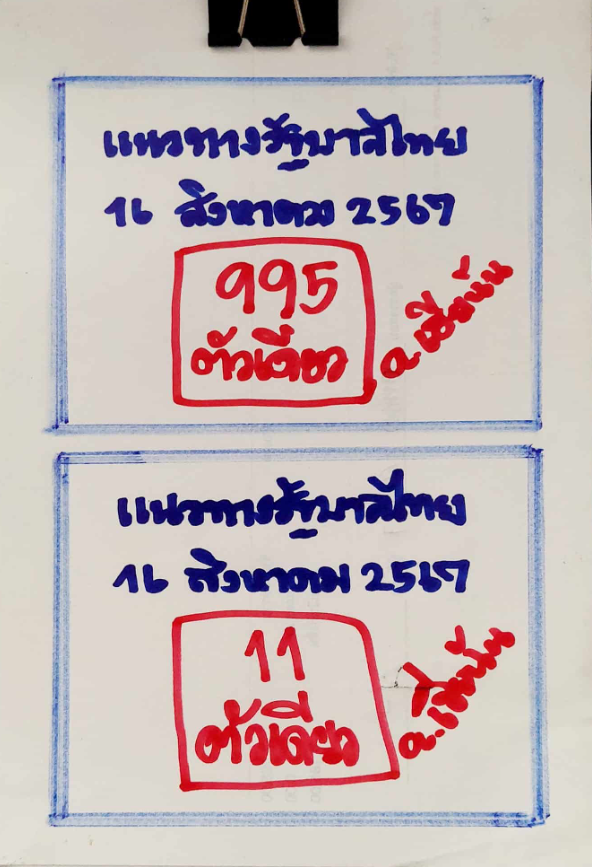 แนวทางรัฐบาลไทย
16 สิงหาคม 2567
995
ตัวเดียว
อ.เซียนั้น
แนวทางรัฐบาลไทย
16 สิงหาคม 2567
11
ตัวเดียว